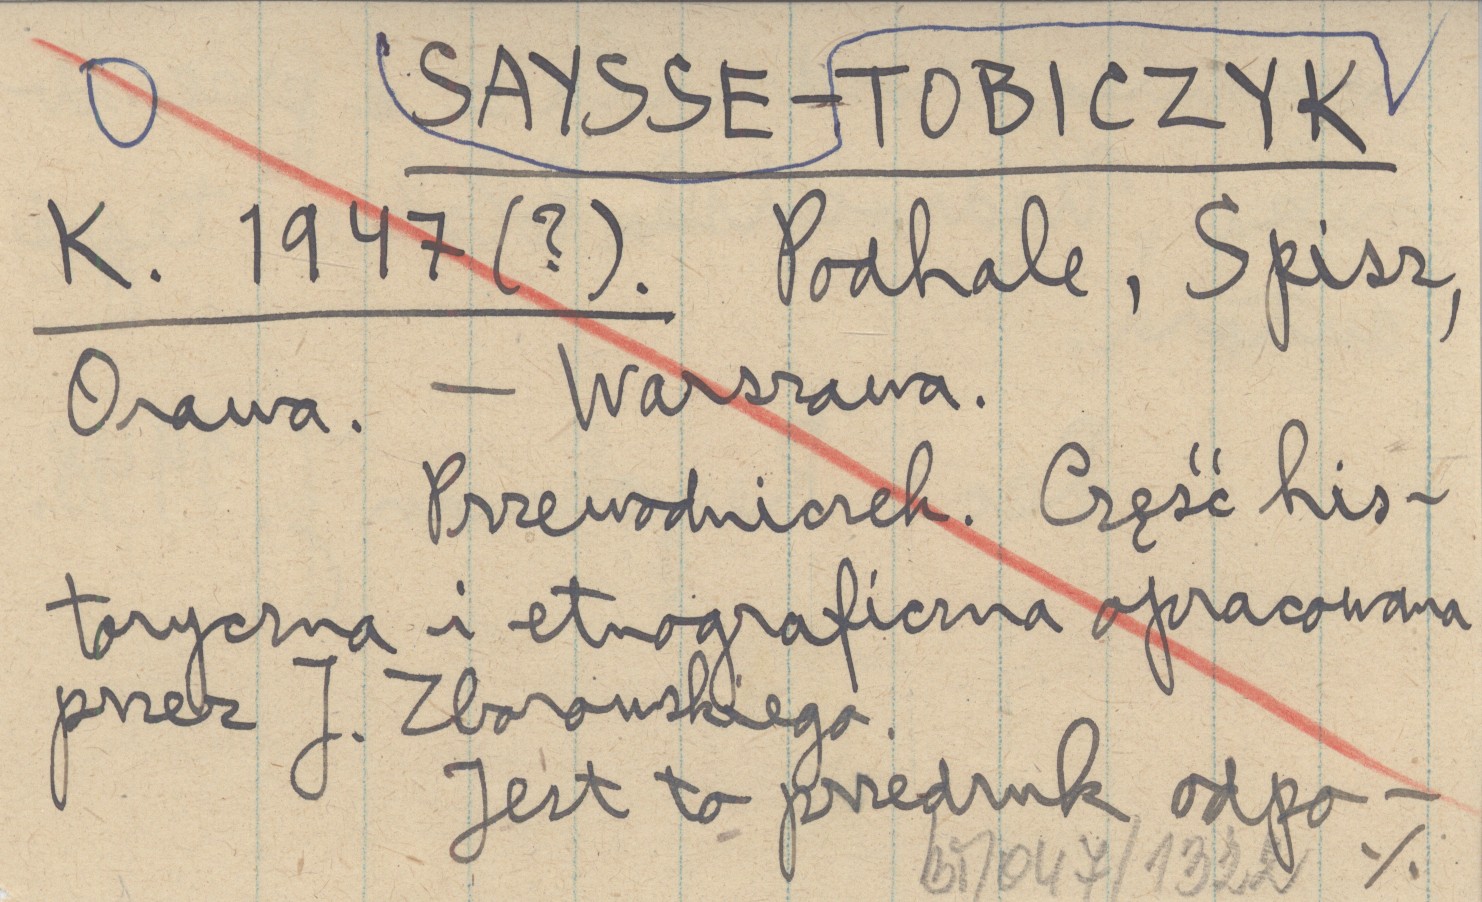 SAYSSE-TOBICZYK
K. 1947(?). Podhale, Spisz,
Orawa. — Warszawa.
Przewodniczek. Część his-
toryczna i etnograficzna opracowana
przez J. Zborowskiego.
Jest to przedruk odpo-
/047/1322 ·/.